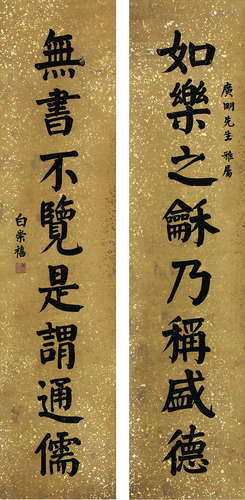 如樂之龢乃稱盛德
廣明先生雅屬
無書不覽是謂通儒
白崇禧